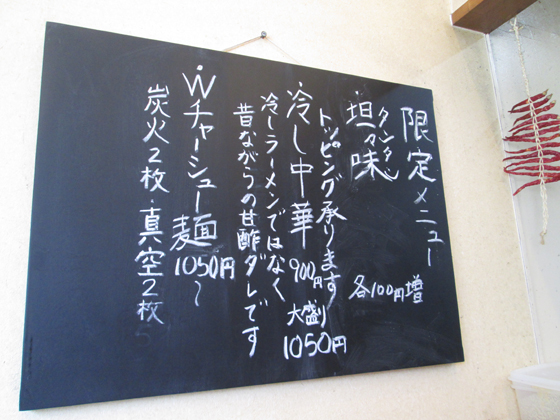 限定メニュー
・坦々味 各100円増
タンタン
トッピング承ります
・冷し中華 900円 大盛り1050円
冷しラーメンではなく
昔ながらの甘酢ダレです
・Wチャーシュー麺 1050円〜
炭火2枚・真空2枚